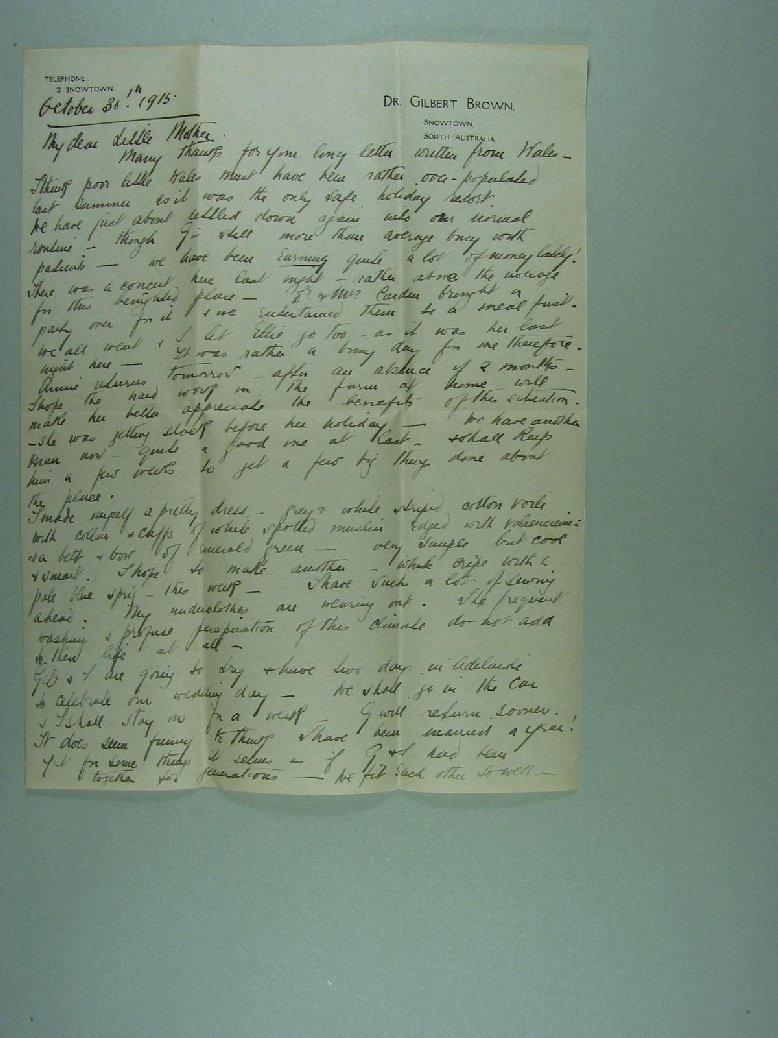 TELEPHONE:
2 SNOWTOWN
DR. GILBERT BROWN.
SNOWTOWN,
SOUTH AUSTRALIA
October 30th. 1915.
My dear Little Mother.
Many thanks for your long letter written from Wales –
I think poor little Wales must have been rather over-populated
last summer as it was the only safe holiday resort.
We have just about settled down again into our normal
routine – though G is still more than average busy with
patients – we have been Earning quite a lot of money lately!
There was a concert here last night – rather above the average
for this benighted place – Dr. & Mrs Carden brought a
party over for it & we entertained them to a meal first.
We all went & I let Ellie go too – as it was her last
night here – It was rather a busy day for me therefore.
Annie returns tomorrow – after an absence of 2 months –
I hope the hard work in the farm at home will
make her better appreciate the benefits of this situation.
– She was getting slack before her holiday – We have another
man now – quite a good one at last – so shall keep
him a few weeks to get a few big things done about
the place.
I made myself a pretty dress – grey & white striped cotton voile
with collar & cuffs of white spotted muslin edged with valenciennes
& a belt & bow of emerald green – very simple but cool
& smart. I hope to make another – white crêpe with a
pale blue sprig – this week – I have such a lot of sewing
ahead. My underclothes are wearing out. The frequent
washing & profuse perspiration of this climate do not add
to their life at all –
G.B & I are going to try & have two days in Adelaide
to celebrate our wedding day – We shall go in the Car
& I shall stay on for a week – G will return sooner.
It does seem funny to think I have been married a year!
Yet for some things it seems as if G & I had been
together for generations – We fit each other so well –